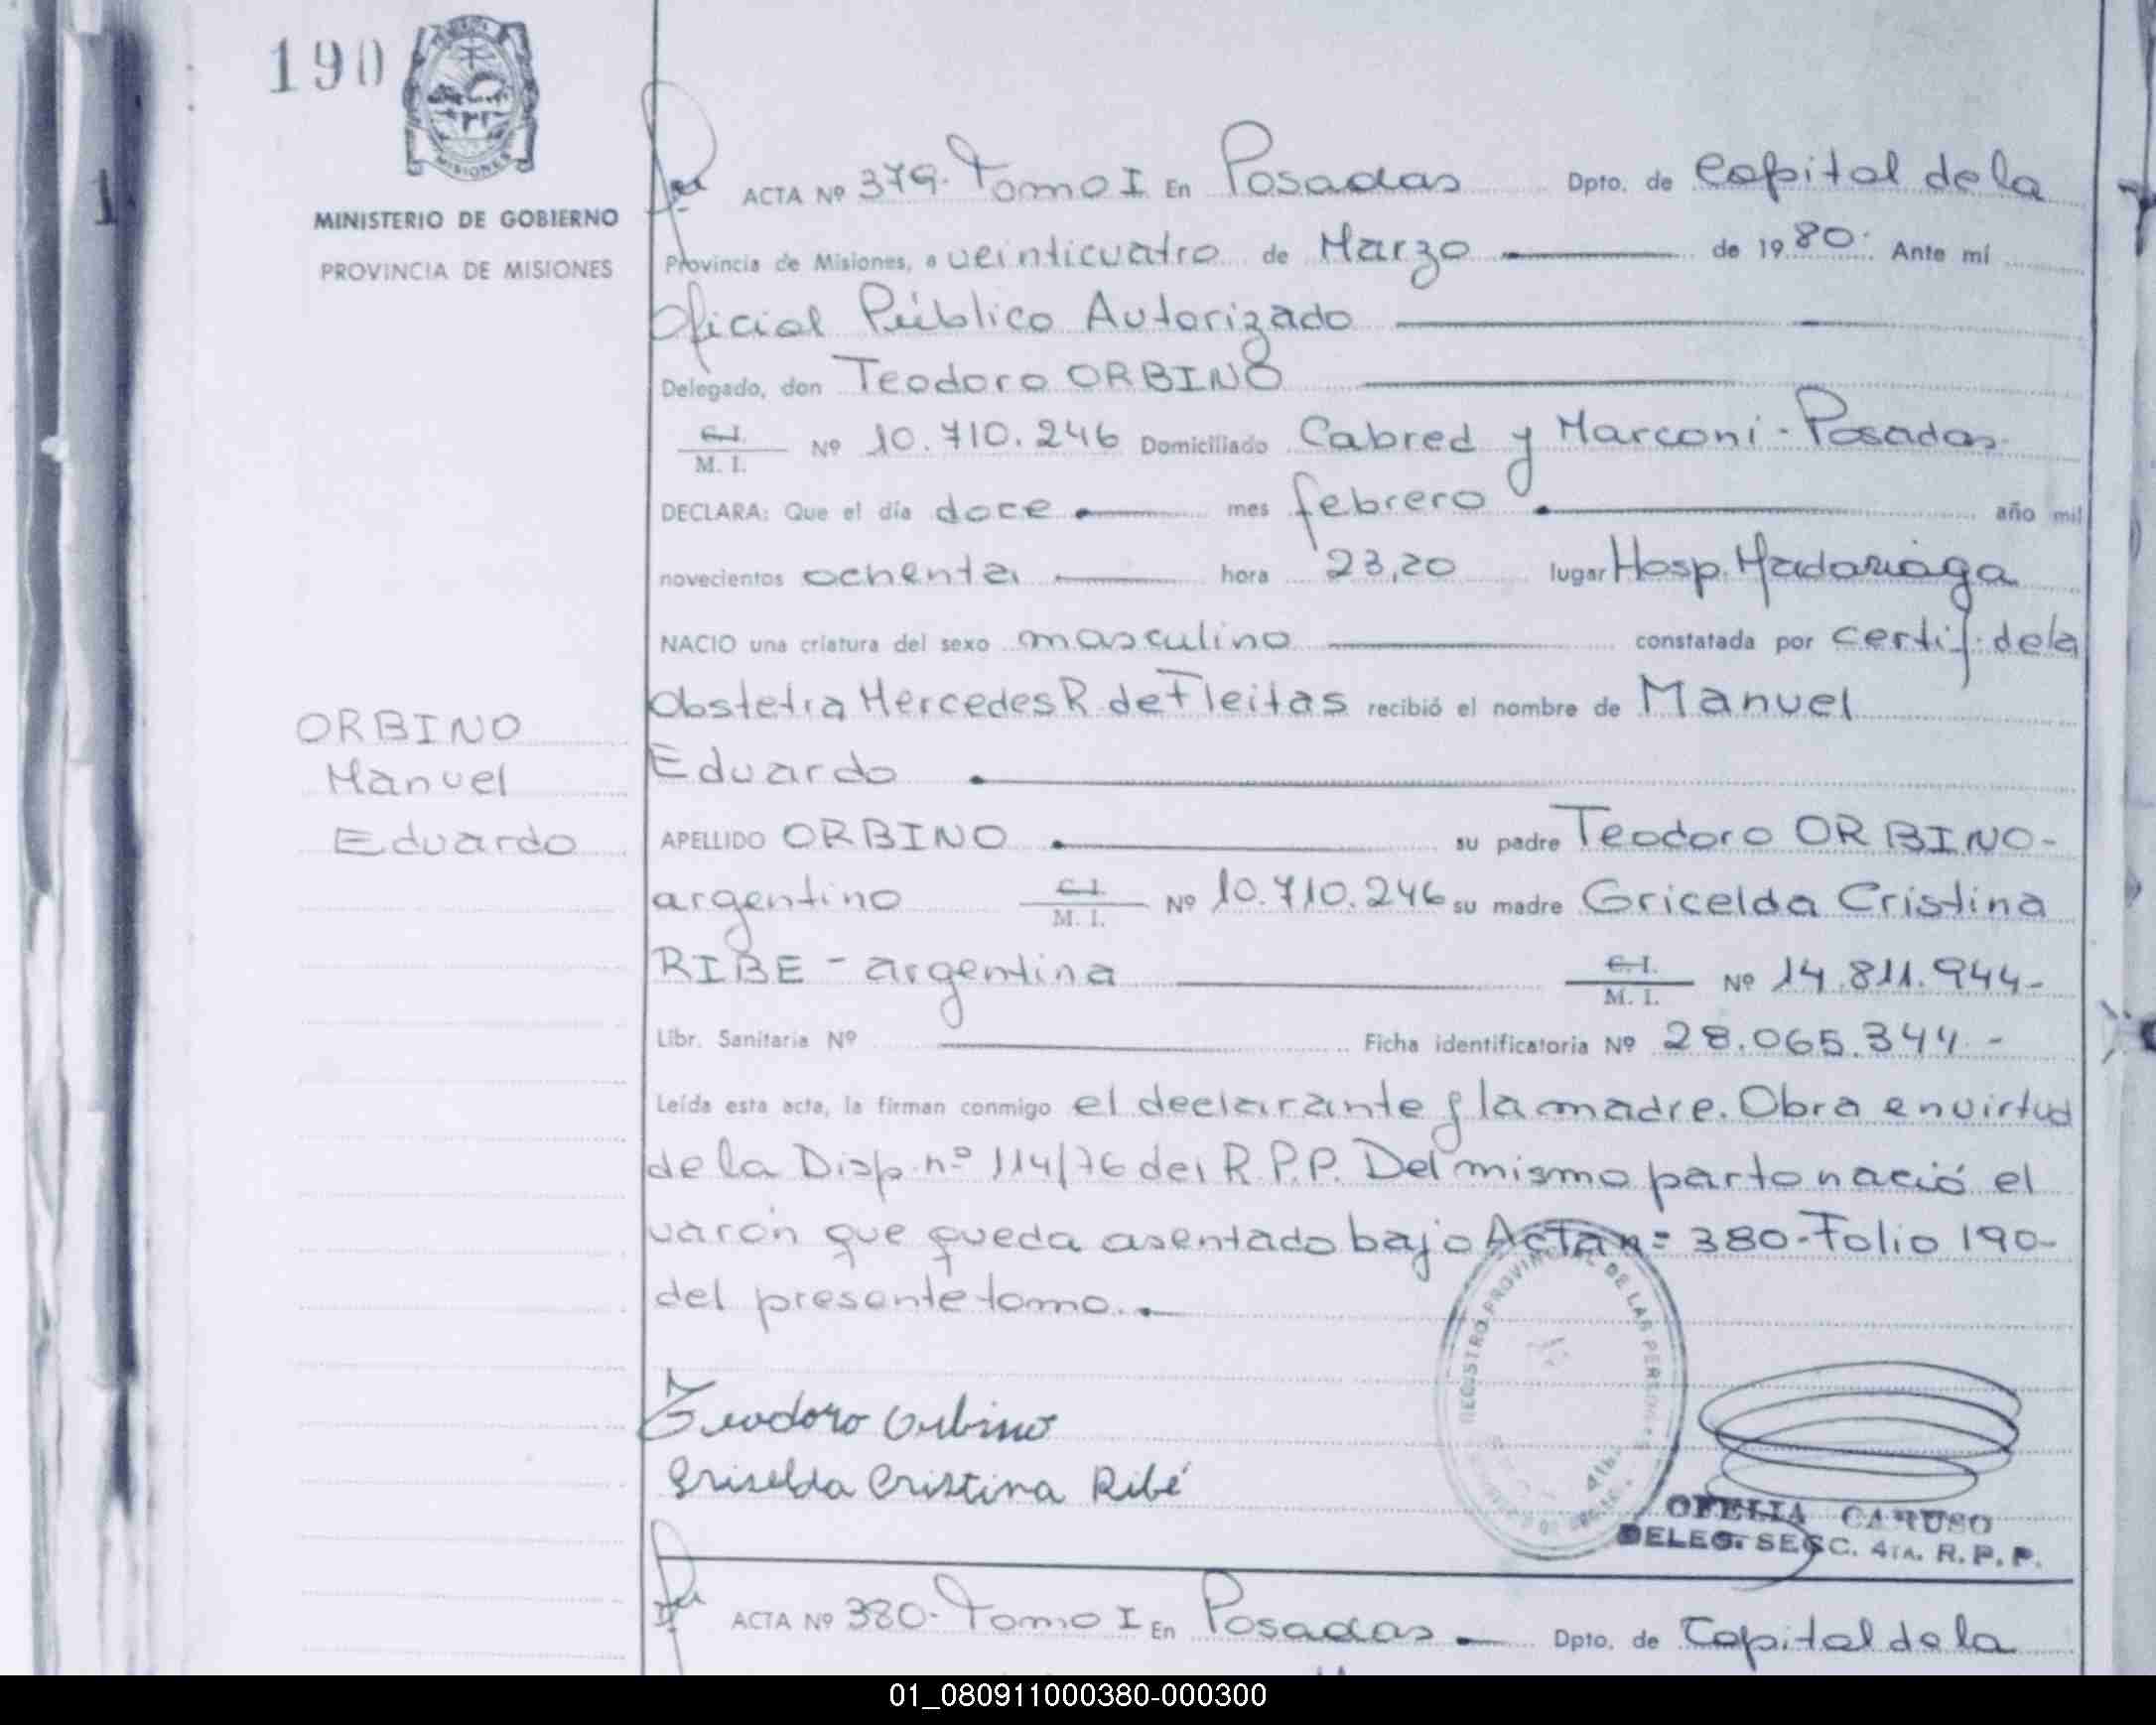 190
MISIONES
MINISTERIO DE GOBIERNO
PROVINCIA DE MISIONES
ACTA Nº 379. Tomo I En Posadas Dpto. de Capital de la
Provincia de Misiones, a veinticuatro de Marzo de 1980. Ante mí
Oficial Público Autorizado
Delegado, don Teodoro ORBINO
C.I.
M. I. Nº 10.710.246 Domiciliado Cabred y Marconi - Posadas.
DECLARA: Que el día doce mes febrero año mil
novecientos ochenta hora 23,20 lugar Hosp. Madariaga
NACIO una criatura del sexo masculino constatada por certif. de la
Obstetra Mercedes R. de Fleitas recibió el nombre de Manuel
Eduardo
ORBINO
Manuel
Eduardo
APELLIDO ORBINO su padre Teodoro ORBINO-
argentino C.I. M. I. Nº 10.710.246 su madre Gricelda Cristina
RIBE - argentina C.I. M. I. Nº 14.811.944-
Libr. Sanitaria Nº Ficha identificatoria Nº 28.065.344 -
Leída esta acta, la firman conmigo el declarante y la madre. Obra en virtud
de la Disp. nº 114/76 del R.P.P. Del mismo parto nació el
varón que queda asentado bajo Acta n= 380-Folio 190-
del presente tomo.
Teodoro Orbino
Griselda Cristina Ribé
REGISTRO PROVINCIAL DE LAS PERSONAS
OFELIA CARUSO
DELEG. SECC. 4TA. R. P. P.
ACTA Nº 380- Tomo I En Posadas Dpto. de Capital de la
01_080911000380-000300